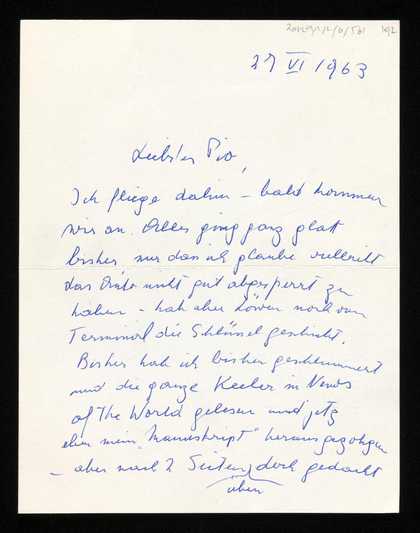 27 VI 1963
Liebster Pio,
Ich fliege dahin – bald kommen
wir an. Alles ging ganz glatt
bisher, nur dass ich glaube vielleicht
das Auto nicht gut abgesperrt zu
haben – hab aber noch vom
Terminal die Schlüssel geschickt.
Bisher hab ich bisher geschlummert
und die ganze Keeler in News
of The World gelesen und jetz
eben mein "Manuskript" herausgezogen
– aber nach 2 Seiten doch gedacht
üben